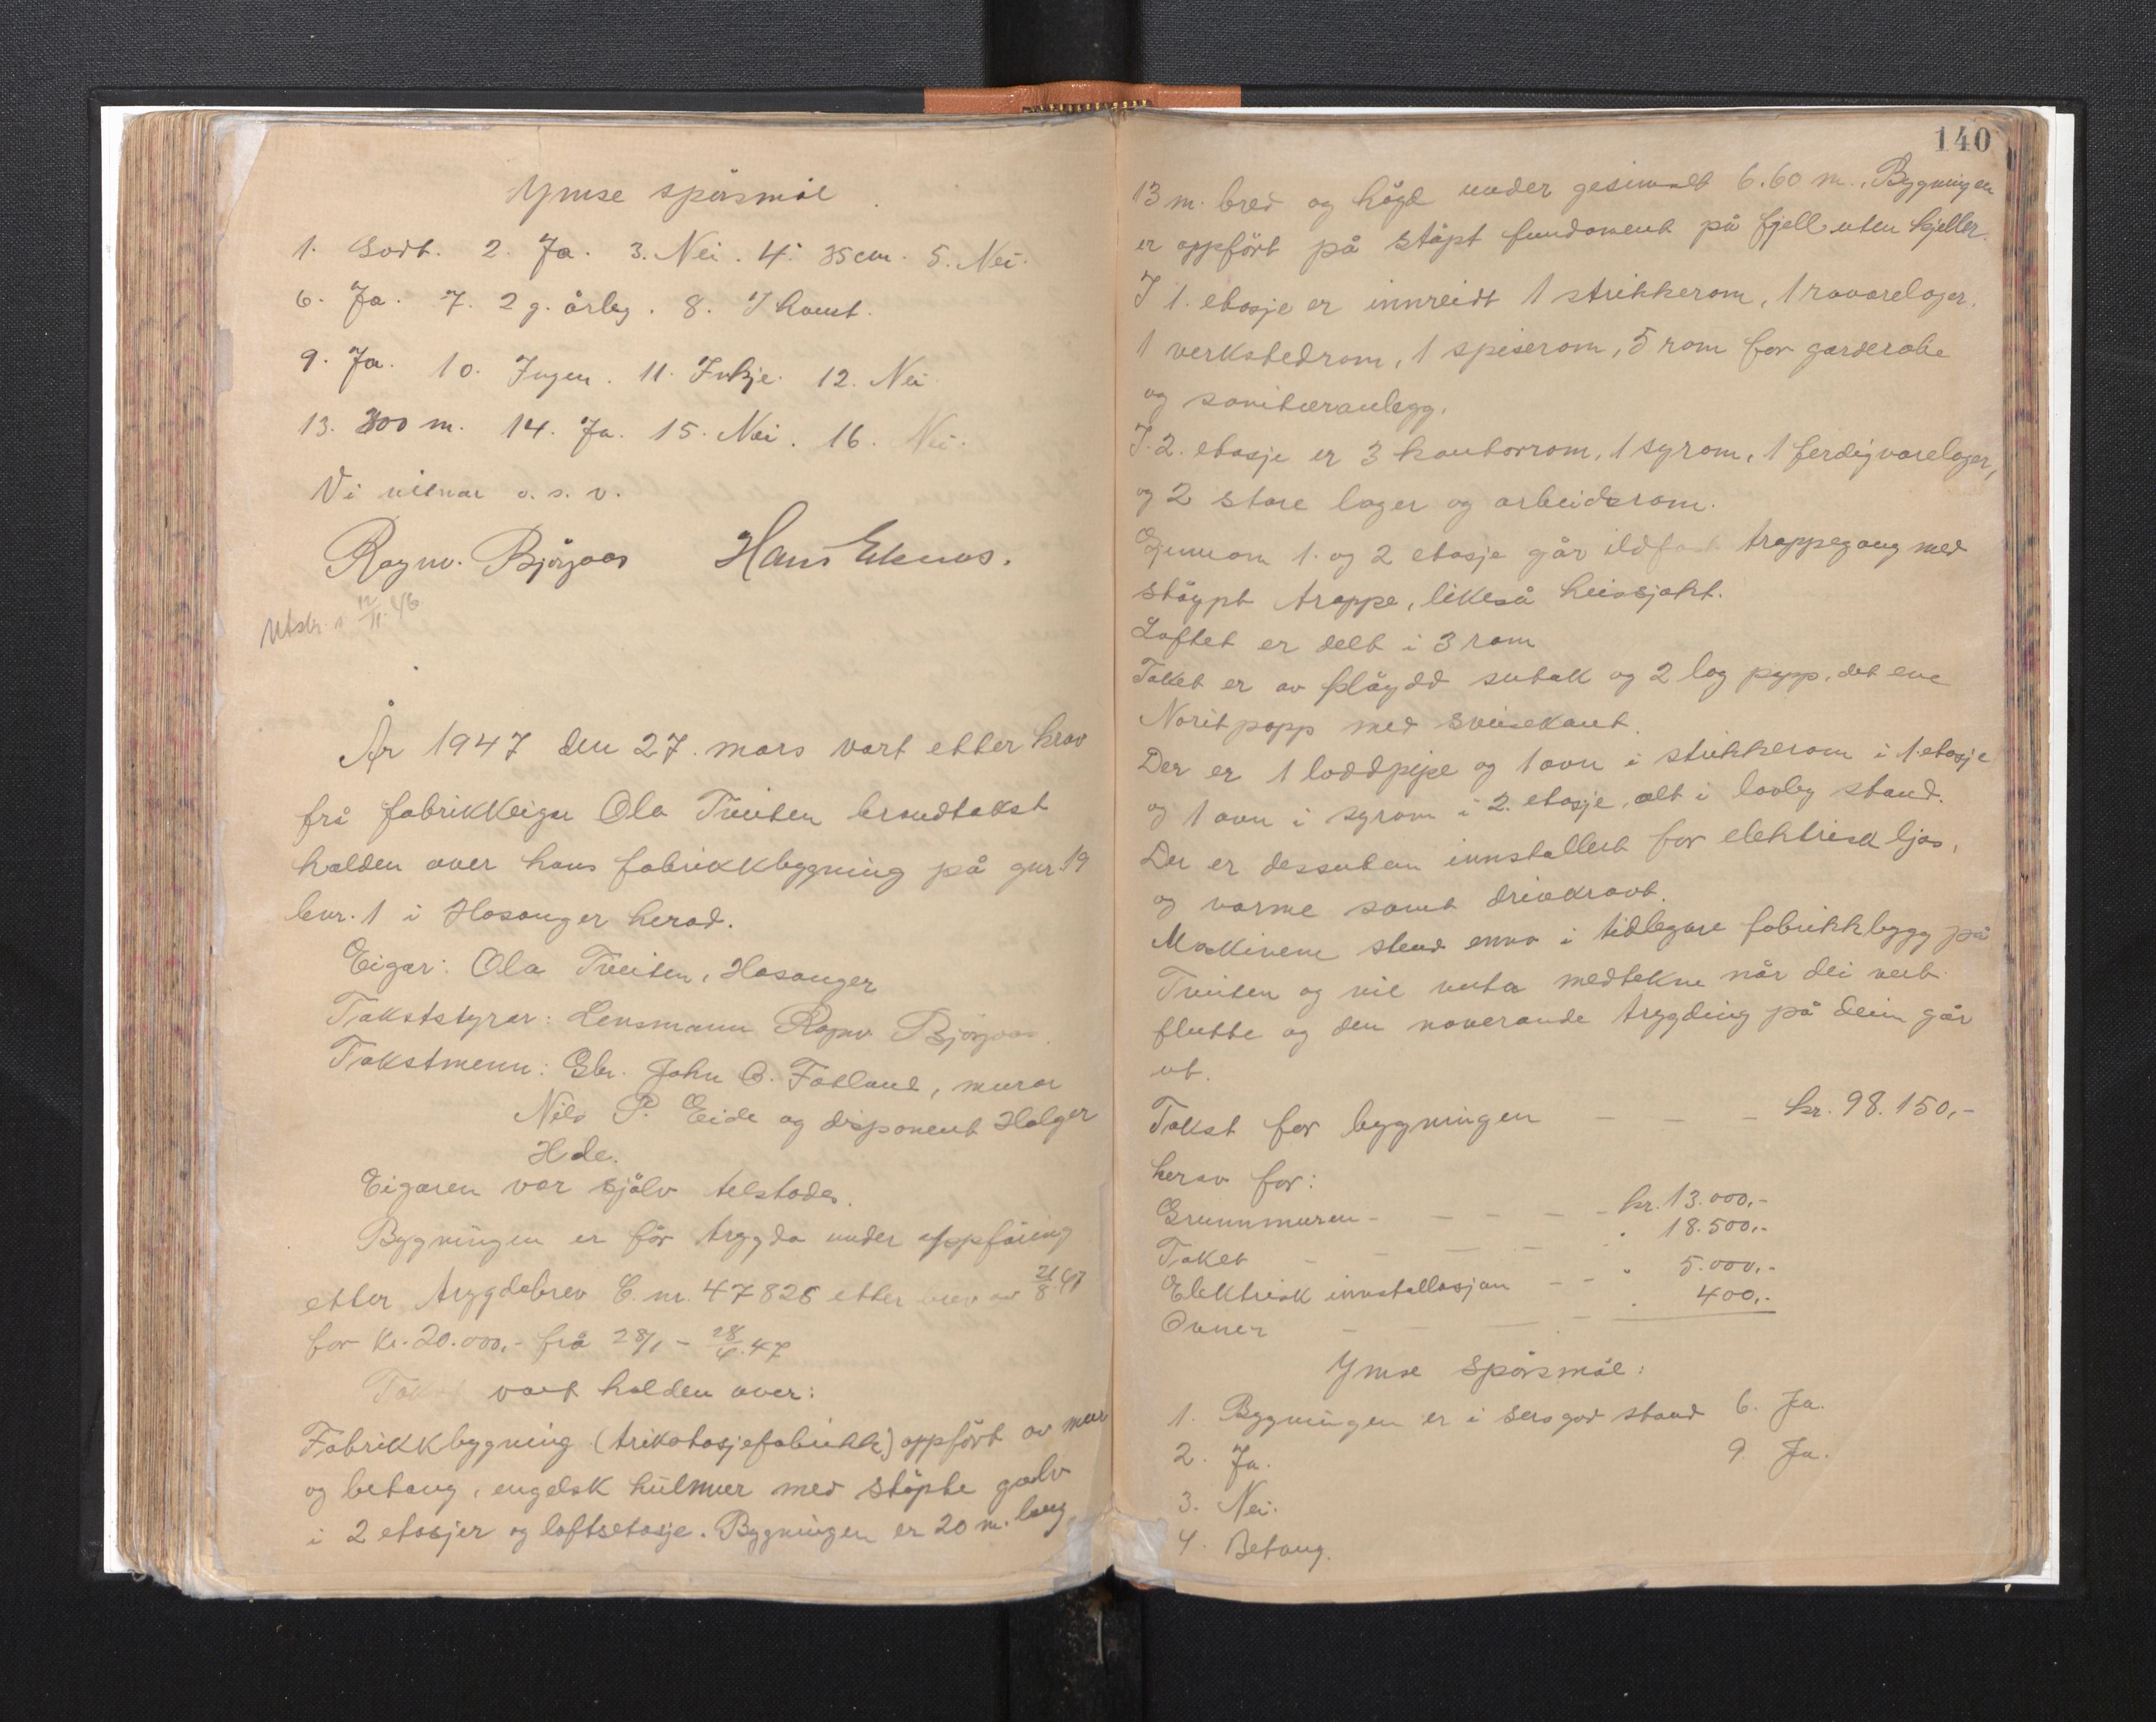 Ymse spörsmål
1. Godt. 2. Ja. 3. Nei. 4. 35 cm. 5. Nei.
6. Ja. 7. 2 g. årleg. 8. I haust.
9. Ja. 10. Ingen. 11. Inkje. 12. Nei
13. 300 m. 14. Ja. 15. Nei. 16. Nei.
Vi vitnar o. s. v.
Ragnv. Björgaas Hans Eknes.
Utskr. 12/11 46
År 1947 den 27. mars vart etter krav
frå fabrikkeigar Ola Tveiten brandtakst
halden over hans fabrikkbygning på gnr. 19
bnr. 1 i Hosanger herad.
Eigar: Ola Tveiten, Hosanger
Takststyrar: Lensmann Ragnv Björgaas.
Takstmenn: Gbr. John O. Fotland, murar
Nils P. Eide og disponent Holger
Hde.
Eigaren var sjölv tilstades.
Bygningen er för trygda under oppföring
etter trygdebrev C. nr. 47826 etter brev av 21/8 47
for kr. 20.000,- frå 28/1 - 28/4.47
Takst vart halden over:
Fabrikkbygning (trikotasjefabrikk) oppfört av mur
og betong, engelsk hulmur med stöpte golv
i 2 etasjer og loftsetasje. Bygningen er 20 m. lang
140
13 m. bred og högd under gesimset 6.60 m. Bygningen
er oppfört på stöpt fundament på fjell uten kjeller.
I 1. etasje er innreidt 1 strikkerom, 1 råvarelager.
1 verkstedrom, 1 spiserom, 5 rom for garderobe
og sanitæranlegg.
I. 2. etasje er 3 kontorrom, 1 syrom, 1 ferdigvarelager,
og 2 store lager og arbeidsrom.
Gjennom 1. og 2 etasje går ildfast trappegang med
stöypt trappe, likeså heissjakt.
Loftet er delt i 3 rom
Taket er av plöydd sutak og 2 lag papp, det ene
Noritpapp med sveisekant.
Der er 1 loddpipe og 1 ovn i strikkerom i 1. etasje
og 1 ovn i syrom i 2. etasje, alt i lovleg stand.
Der er dessutan innstallert for elektrisk ljos,
og varme samt drivkraft.
Maskinene stend enno i tidlegare fabrikkbygg på
Tveiten og vil verta medtekne når dei vert
flutte og den noverande trygding på deim går
ut.
Takst for bygningen - - - kr. 98.150,-
herav for:
Grunnmuren - - - - - kr. 13.000,-
Taket - - - - " 18.500,-
Elektrisk innstallasjon - - " 5.000,-
Ovner - - - - " 400,-
Ymse spörsmål:
1. Bygningen er i sers god stand 6. Ja.
2. Ja. 9 Ja.
3. Nei.
4. Betong.